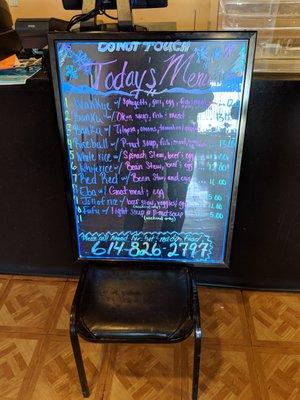 DO NOT TOUCH
Today's Menu
1 Waakye w/ Spaghetti, gari, egg, fish/meat
2 Banku w/ Okra soup, fish, meat
3 Banku w/ Tilapia, onions, tomatoes/
4 Riceball w/ P-nut soup, fish, meat
5 White rice w/ Spinach Stew, beef, egg
6 White rice w/ Bean Stew, beef, egg
7 Red Red w/ Bean Stew, and egg
8 Eba w/ Goat meat, egg
9 Jollof rice w/ beef stew, veggies/egg 5.00
(weekend only)
10 Fufu w/ Light soup & P-nut soup 5.00
(weekend only)
11
Please Call Ahead for hot, not dry food
614-826-2797